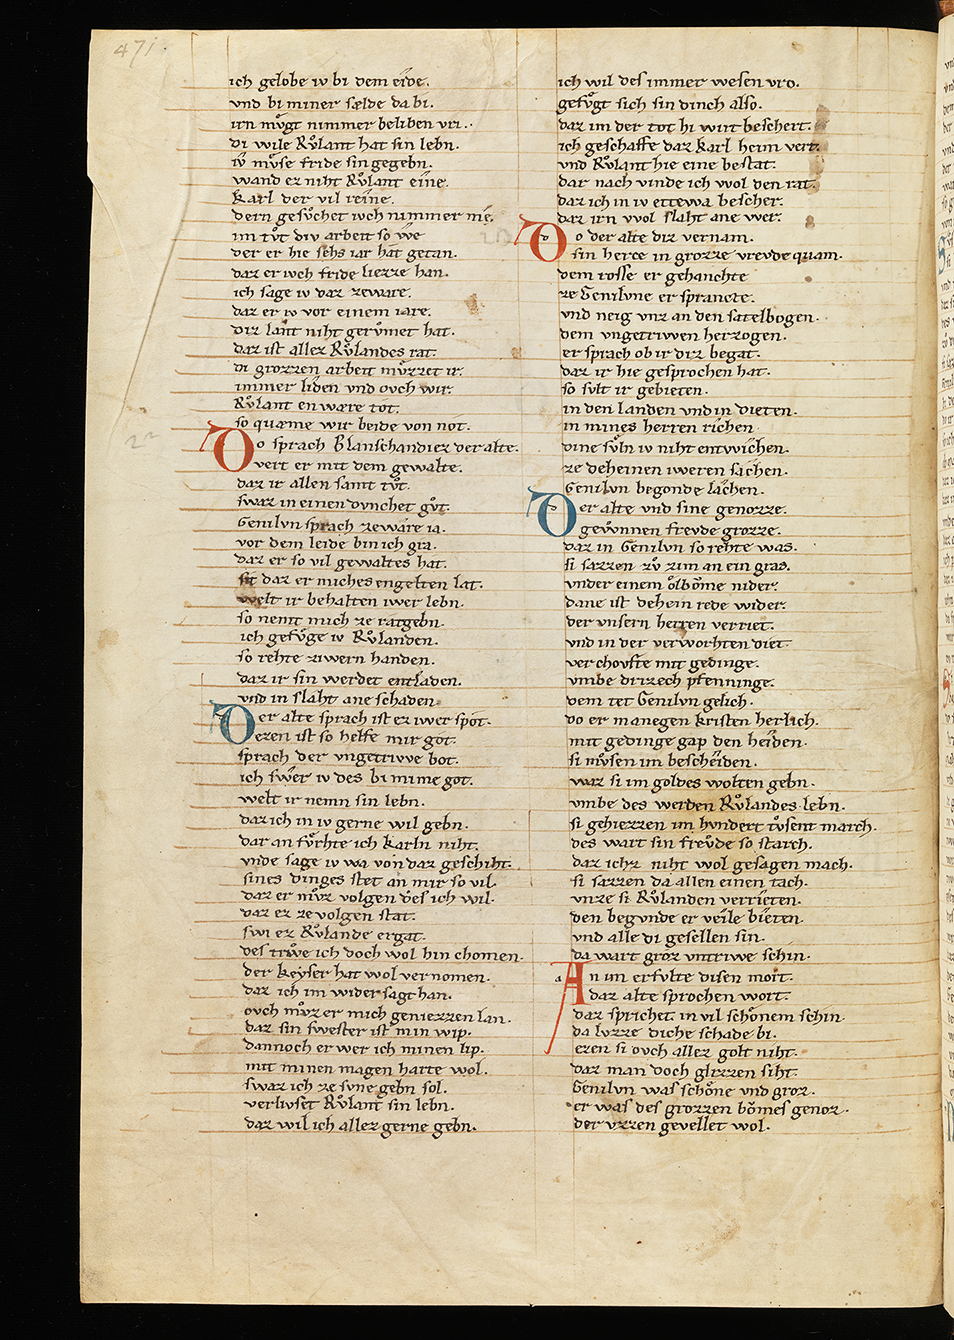 471.
ich gelobe iv bi dem eide.
vnd bi miner sælde da bi.
irn mvͦgt nimmer beliben vri.
di wile Rvͦlant hat sin lebn.
iv mvͦse fride sin gegebn.
wand ez niht Rvͦlant eine.
Karl der vil reine.
dern gesvͦchet ivch nimmer me.
im tvͦt div arbeit so we
der er hie sehs iar hat getan.
daz er ivch fride liezze han.
ich sage iv daz zeware.
daz er iv vor einem iare.
diz lant niht gervͦmet hat.
daz ist allez Rvͦlandes rat.
di grozzen arbeit mvͦzzet ir.
immer liden vnd ovch wir.
Rvͦlant en wære tot.
so quæme wir beide von not.
Do sprach Blanschandiez der alte.
vert er mit dem gewalte.
daz ir allen samt tvͦt.
swaz in einen dvnchet gvͦt.
Genilvn sprach zeware ia.
vor dem leide bin ich gra.
daz er so vil gewaltes hat.
sit daz er mich es engelten lat.
welt ir behalten iwer lebn.
so nemt mich ze ratgebn.
ich gefvͦge iv Rvͦlanden.
so rehte ziwern handen.
daz ir sin werdet entladen.
vnd in slaht ane schaden
Der alte sprach ist ez iwer spot.
ezen ist so helfe mir got.
sprach der vngetrivve bot.
ich swer iv des bi mime got.
welt ir nemn sin lebn.
daz ich in iv gerne wil gebn.
dar an fvͦrhte ich Karln niht.
vnde sage iv wa von daz geschiht.
sines dinges stet an mir so vil.
daz er mvͦz volgen des ich wil.
daz ez ze volgen stat.
swi ez Rvͦlande ergat.
des trwe ich doch wol hin chomen.
der keyser hat wol vernomen.
daz ich im widersagt han.
ovch mvͦz er mich geniezzen lan.
daz sin swester ist min wip.
dannoch er wer ich minen lip.
mit minen magen harte wol.
swaz ich ze svne gebn sol.
verlivset Rvͦlant sin lebn.
daz wil ich allez gerne gebn.
ich wil des immer wesen vro.
gefvͦgt sich sin dinch also.
daz im der tot hi wirt beschert.
ich geschaffe daz Karl heim vert.
vnd Rvͦlant hie eine bestat.
dar nach vinde ich wol den rat.
daz ich in iv ettewa bescher.
daz irn wol slaht ane wer.
Do der alte diz vernam.
sin herce in grozze vrevde quam.
dem rosse er gehanchte
ze Genilvne er sprancte.
vnd neig vnz an den satelbogen.
dem vngetriwen herzogen.
er sprach ob ir diz begat.
daz ir hie gesprochen hat.
so svlt ir gebieten.
in den landen vnd in dieten.
in mines herren richen
dine svͦln iv niht entwichen.
ze deheinen iweren sachen.
Genilvn begonde lachen.
Der alte vnd sine genozze.
gewnnen frevde grozze.
daz in Genilvn so rehte was.
si sazzen zv zim an ein gras.
vnder einem olbome nider.
dane ist dehein rede wider.
der vnsern herren verriet.
vnd in der verworhten diet.
verchovfte mit gedinge.
vmbe drizech pfenninge.
dem tet Genilvn gelich.
do er manegen kristen herlich.
mit gedinge gap den heiden.
si mvͦsen im bescheiden.
waz si im goldes wolten gebn.
vmbe des werden Rvͦlandes lebn.
si gehiezzen im hvndert tvsent march.
des wart sin frevde so starch.
daz ichz niht wol gesagen mach.
si sazzen da allen einen tach.
vnze si Rvͦlanden verrieten.
den begvnde er veile bieten.
vnd alle di gesellen sin.
da wart groz vntriwe schin.
An im erfvlte disen mort.
daz alte sprochen wort.
daz sprichet in vil schonem schin
da lvzze diche schade bi.
ezen si ovch allez golt niht.
daz man doch glizzen siht.
Genilvn was schone vnd groz.
er was des grozzen bomes genoz.
der vzzen gevellet wol.